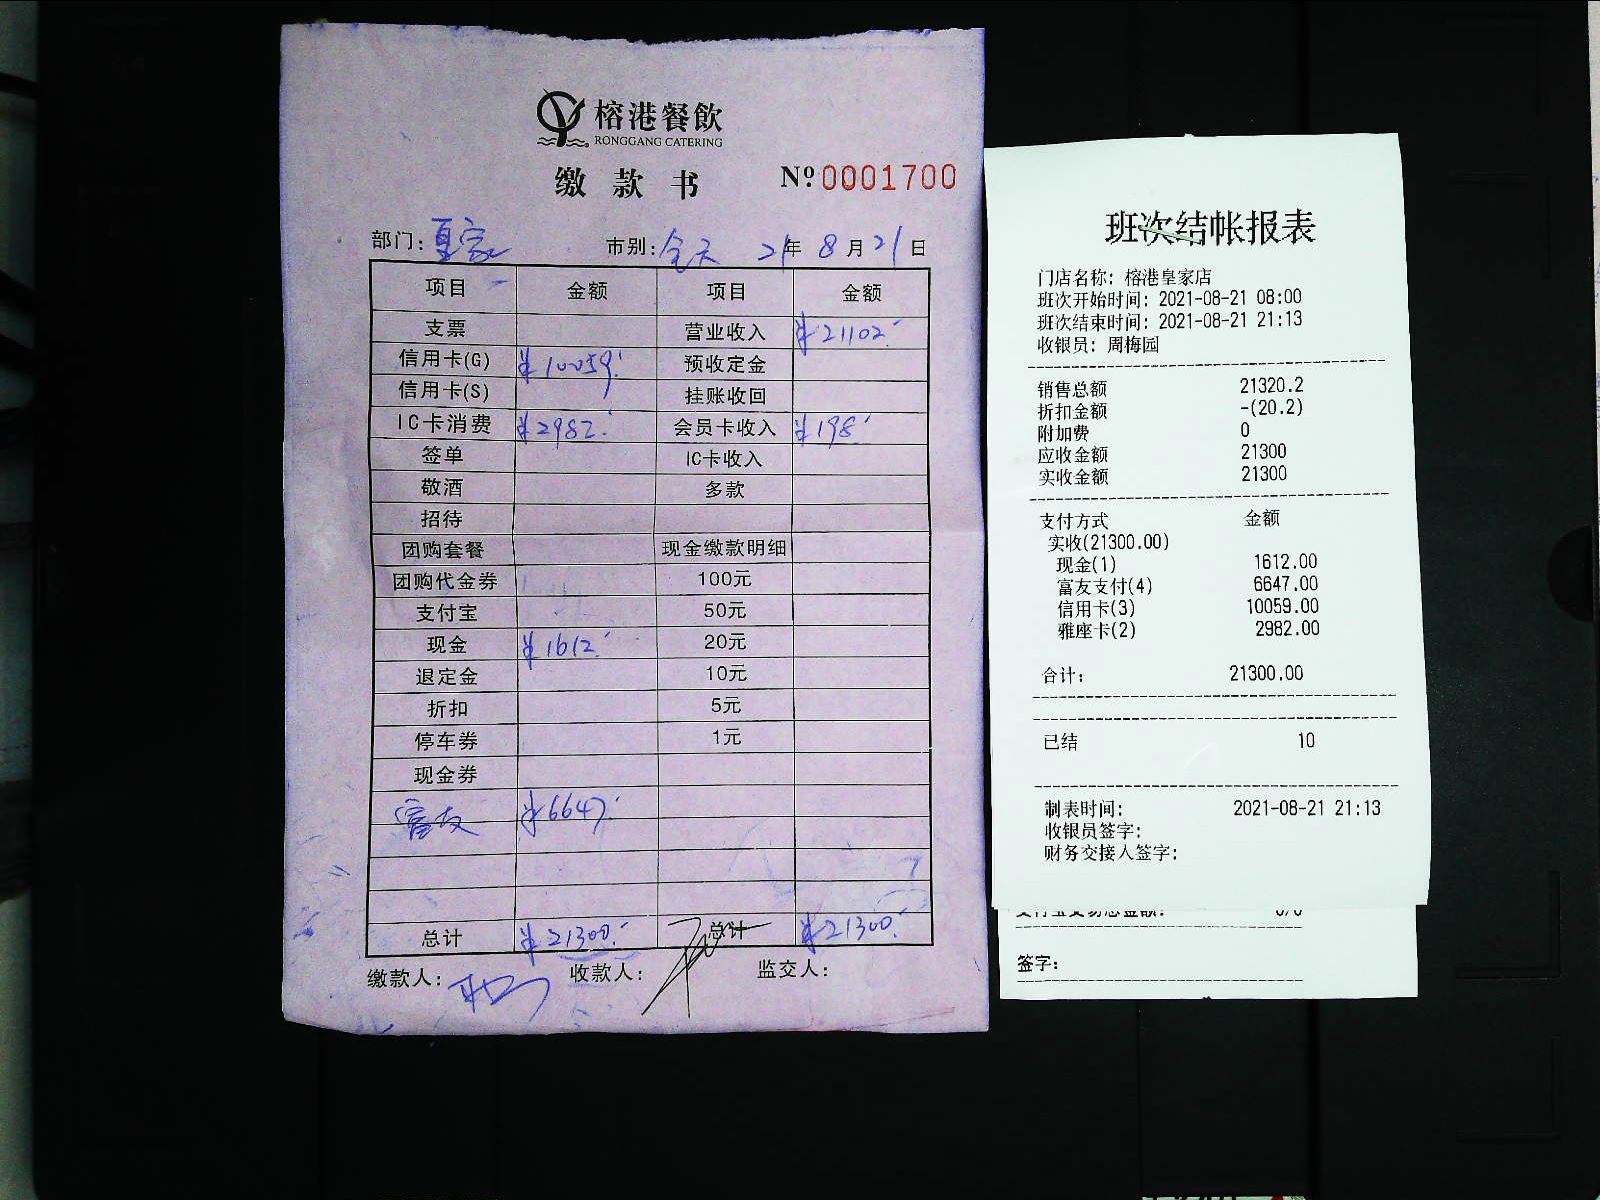 榕港餐飲
RONGGANG CATERING
缴款书 Nº 0001700
部门: 皇家 市别: 全天 21年 8月 21日
项目 金额 项目 金额
支票 营业收入 ¥21102
信用卡(G) ¥10059 预收定金
信用卡(S) 挂账收回
IC卡消费 ¥2982 会员卡收入 ¥198
签单 IC卡收入
敬酒 多款
招待
团购套餐 现金缴款明细
团购代金券 100元
支付宝 50元
现金 ¥1612 20元
退定金 10元
折扣 5元
停车券 1元
现金券
富友 ¥6647
总计 ¥21300 总计 ¥21300
缴款人: 收款人: 监交人:
班次结帐报表
门店名称: 榕港皇家店
班次开始时间: 2021-08-21 08:00
班次结束时间: 2021-08-21 21:13
收银员: 周梅园
销售总额 21320.2
折扣金额 -(20.2)
附加费 0
应收金额 21300
实收金额 21300
支付方式 金额
实收(21300.00)
现金(1) 1612.00
富友支付(4) 6647.00
信用卡(3) 10059.00
雅座卡(2) 2982.00
合计: 21300.00
已结 10
制表时间: 2021-08-21 21:13
收银员签字:
财务交接人签字:
签字: